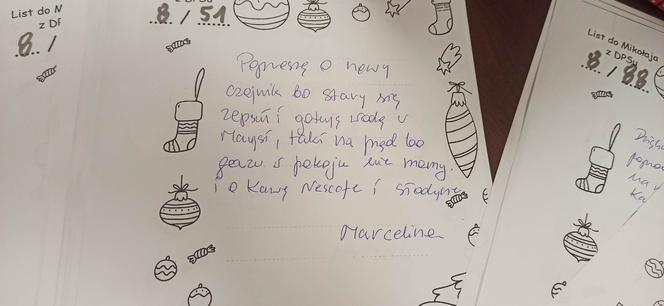 List do N
z DP
8. /
z DPSu
8 / 51
Poproszę o nowy
czajnik bo stary się
zepsuł i gotuję wodę w
taki na prąd bo
gazu w pokoju nie mamy.
i o Kawę Nescafe i słodycze
Marcelina
List do Mikołaja
z DPSu
8 / 88